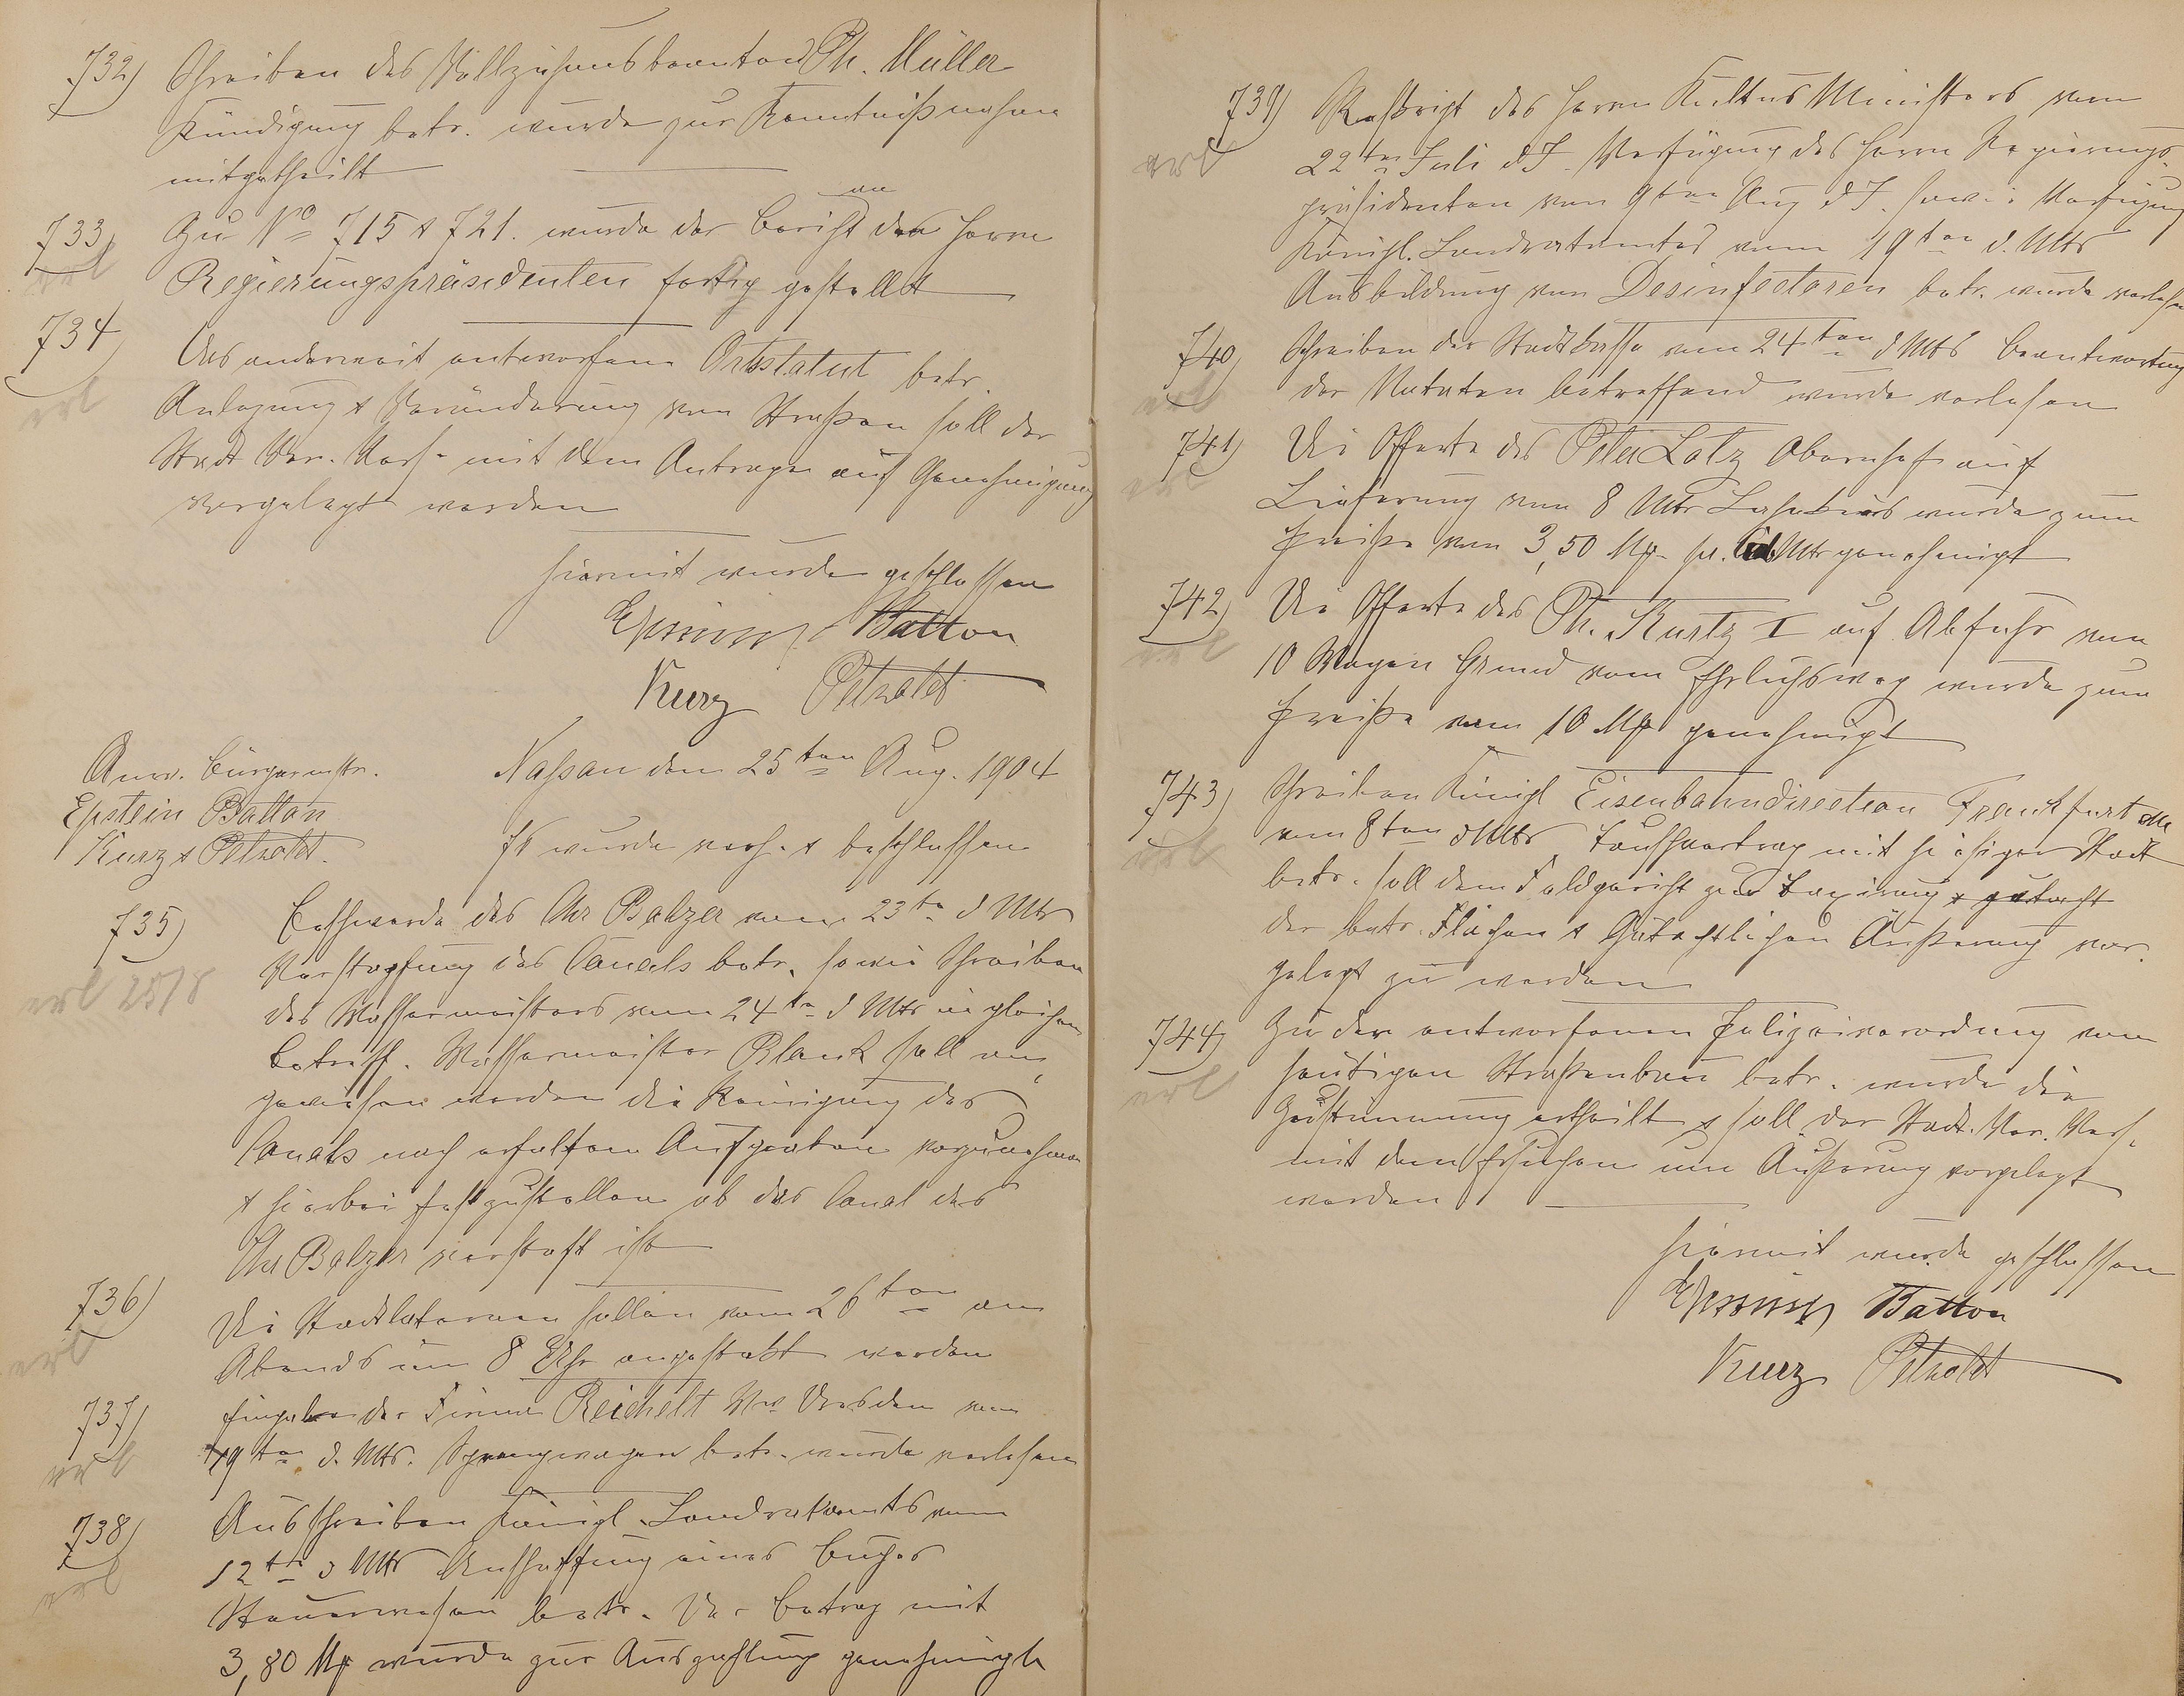 732) Schreiben des Vollziehungsbeamten Ph. Müller
Kündigung betr. wurde zur Kenntnißnahme
mitgetheilt
733) Zu No 715 & 721. wurde der Bericht an den Herrn
erl
Regierungspräsidenten fertig gestellt
734) Das anderweit entworfene Ortsstatut betr.
erl
Anlegung & Veränderung von Straßen soll der
Stadt Ver. Vers. mit dem Antrage auf Genehmigung
vorgelegt werden
Hiermit wurde geschlossen
Batton
Kurz Petzoldt
Anw. Bürgermstr.
Epstein Batton
Kurz & Petzoldt.
Nassau den 25ten Aug. 1904
Es wurde verh. & beschlossen
735) Beschwerde des Chr Balzer vom 23te d Mts
Verstopfung des Canals betr. sowie Schreiben
erl 25/8
des Wassermeisters vom 24te d Mts im gleichen
Betreff. Wassermeister Blank soll an
gewiesen werden die Reinigung des
Canals nach erfolgtem Aufgraben vorzunehmen
& hierbei festzustellen ob der Canal des
Chr Balzer verstopft ist
736) Die Stadtlaternen sollen vom 26ten an
erl
Abends um 8 Uhr angesteckt werden
737) Eingabe der Firma Reichelt Dresden vom
erl
19te d. Mts. Sprengwagen betr. wurde verlesen
738) Ausschreiben Königl. Landratsamts vom
12te d Mts Anschaffung eines Buches
erl
Steuerwesen betr. Der Betrag mit
3,80 Mk wurde zur Auszahlung genehmigt
739) Reskript des Herrn Kultus Ministers vom
erl
22ten Juli d J. Verfügung des Herrn Regierungs-
präsidenten vom 9ten Aug d J. sowie Verfügung
Königl. Landratamtes vom 19ten d. Mts
Ausbildung von Desinfectoren betr. wurde verlesen
740) Schreiben der Stadtkasse vom 24ten d Mts Beantwortung
erl
der Notaten betreffend wurde verlesen
741) Die Offerte des Peter Lotz Obernhof auf
erl
Lieferung von 8 Mtr Lahnkies wurde zum
Preise von 3,50 Mk. pr. Cub Mtr genehmigt
742) Die Offerte des Ph. Kurtz I auf Abfuhr von
erl
10 Wagen Grund vom Ehrlichsweg wurde zum
Preise von 10 Mk genehmigt
743) Schreiben Königl Eisenbahndirection Frankfurt a/M
vom 8ten d Mts Tauschvertrag mit hiesiger Stadt
erl
betr. soll dem Feldgericht zur Taxirung & gutacht
der betr. Flächen & Gutachtlichen Äußerung vor-
gelegt zu werden
744) Zu der entworfenen Polizeiverordnung vom
heutigen Straßenbau betr. wurde die
erl
Zustimmung ertheilt & soll der Stadt. Ver. Vers.
mit dem Ersuchen um Äußerung vorgelegt
werden
Hiermit wurde geschlossen
Batton
Kurz Petzoldt